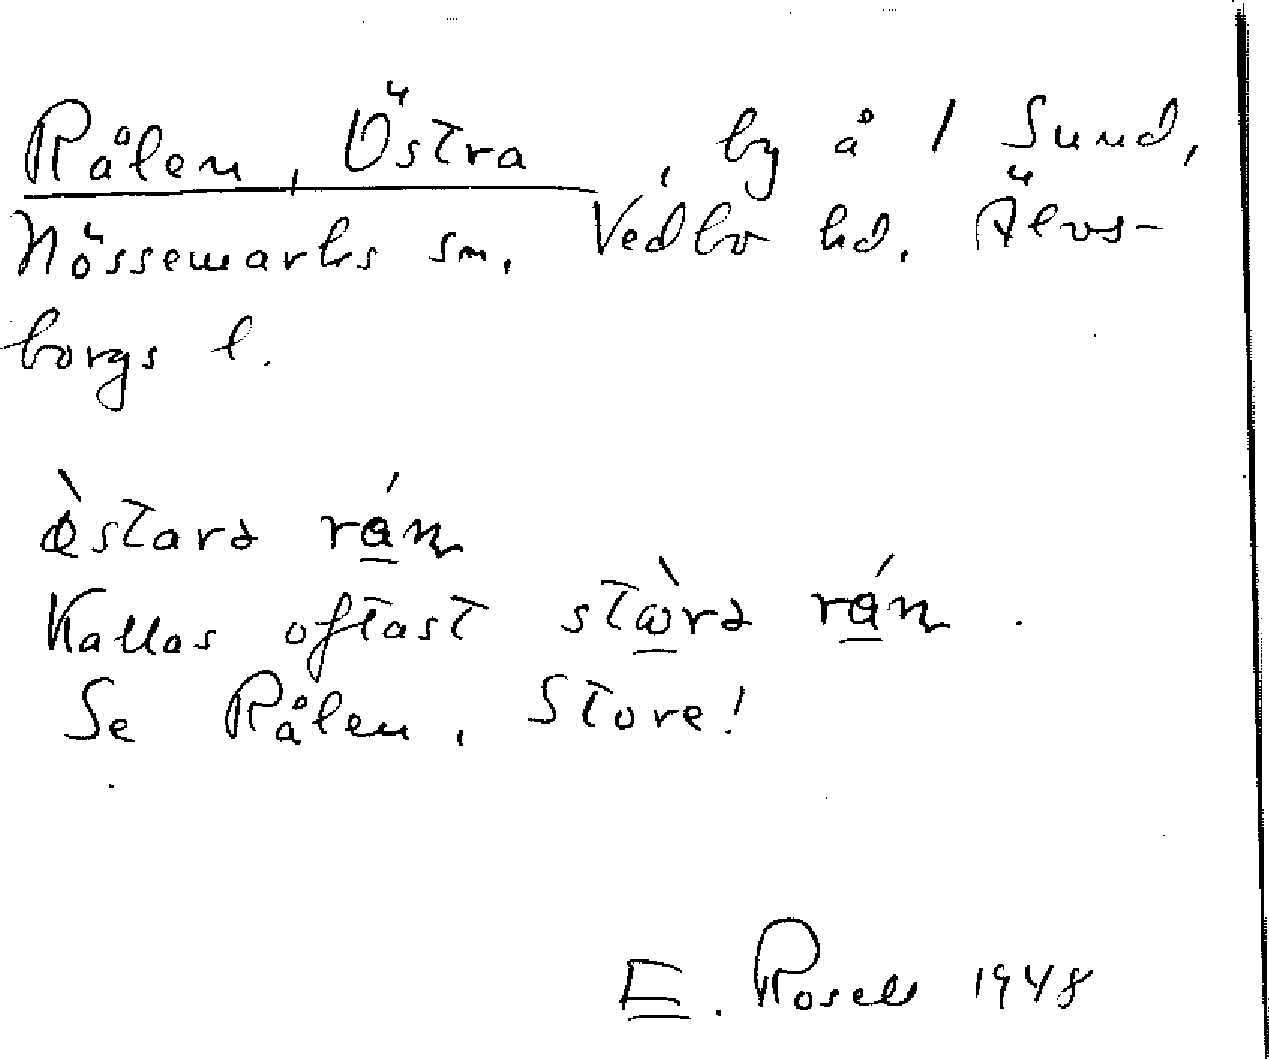 Rålen, Östra, by å 1 Sund,
Nössemarks sn. Vedbo hd. Älvs-
borgs l.
rán
Kallas oftast rán.
Se Rålen, Store!
E. Rosell 1948